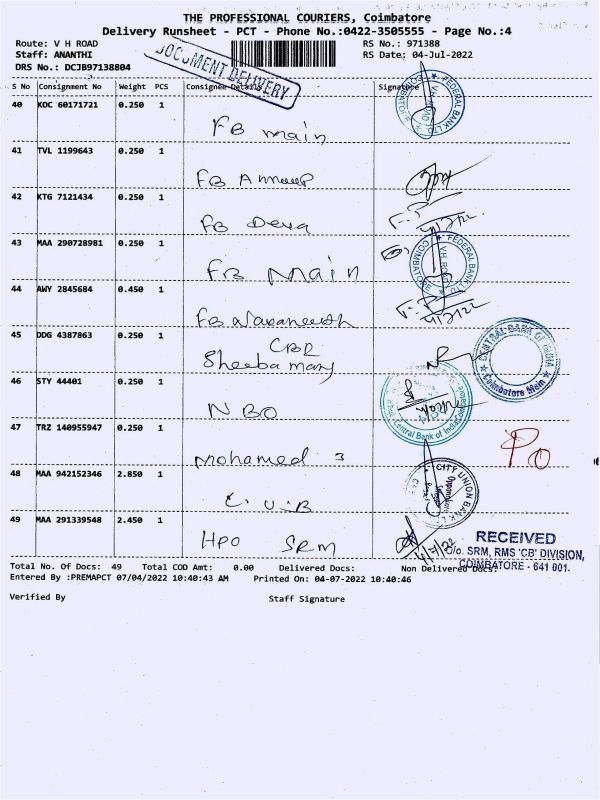 THE PROFESSIONAL COURIERS, Coimbatore
Delivery Runsheet - PCT - Phone No.:0422-3505555 - Page No.:4
Route: V H ROAD
RS No.: 971388
Staff: ANANTHI
RS Date: 04-Jul-2022
DRS No.: DCJB97138804
DOCUMENT DELIVERY
S No Consignment No Weight PCS Consignee Details Signature
40 KOC 60171721 0.250 1
FB main
FEDERAL BANK LTD COIMBATORE
41 TVL 1199643 0.250 1
FB
42 KTG 7121434 0.250 1
FB Deva
43 MAA 290728981 0.250 1
FB Main
FEDERAL BANK LTD V.H. ROAD COIMBATORE
44 AWY 2845684 0.450 1
FB
4/7/22
45 DDG 4387863 0.250 1
CBR
Sheeba mary
CENTRAL BANK OF INDIA Coimbatore Main
46 STY 44401 0.250 1
NBO
Central Bank of India
47 TRZ 140955947 0.250 1
Mohamed 3
PO
48 MAA 942152346 2.850 1
C.U.B
CITY UNION BANK LTD
49 MAA 291339548 2.450 1
HPO SRM
4/7/22
RECEIVED
O/o. SRM, RMS 'CB' DIVISION,
COIMBATORE - 641 001.
Total No. Of Docs: 49 Total COD Amt: 0.00 Delivered Docs: Non Delivered Docs:
Entered By :PREMAPCT 07/04/2022 10:40:43 AM Printed On: 04-07-2022 10:40:46
Verified By Staff Signature